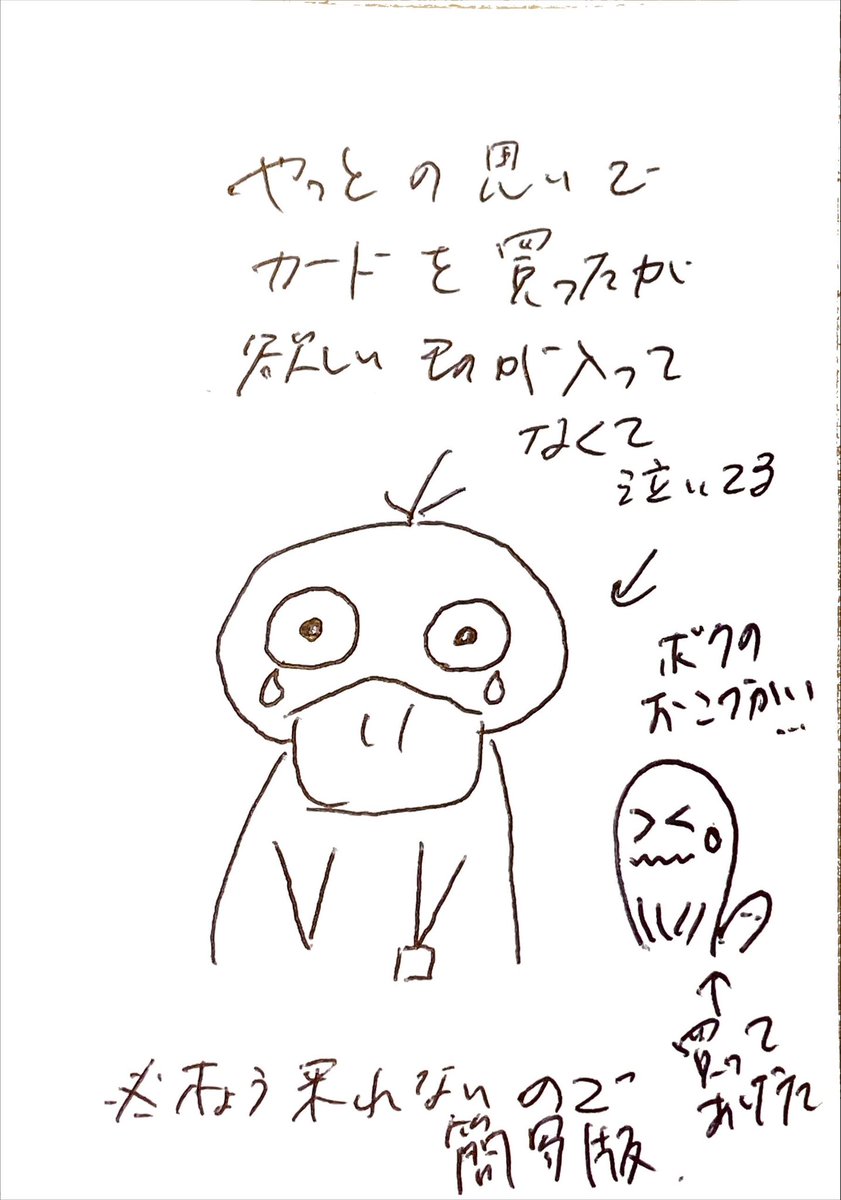 やっとの思いで
カードを買ったが
欲しいものが入って
なくて
泣いてる
ボクの
おこづかい…
買って
あげた
※木よう来れないので
簡易版.